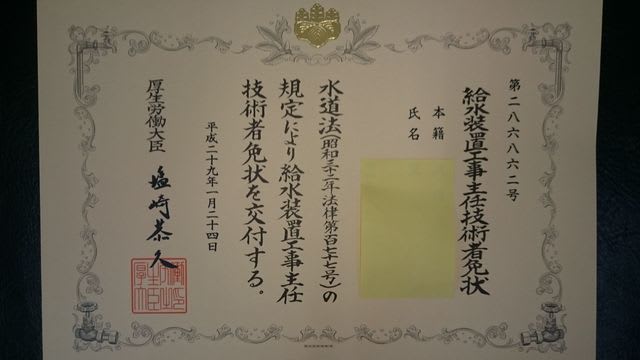 第二八六八六二号
給水装置工事主任技術者免状
本籍
氏名
水道法(昭和三十二年法律第百七十七号)の
規定により給水装置工事主任
技術者免状を交付する。
平成二十九年一月二十四日
厚生労働大臣 塩崎恭久